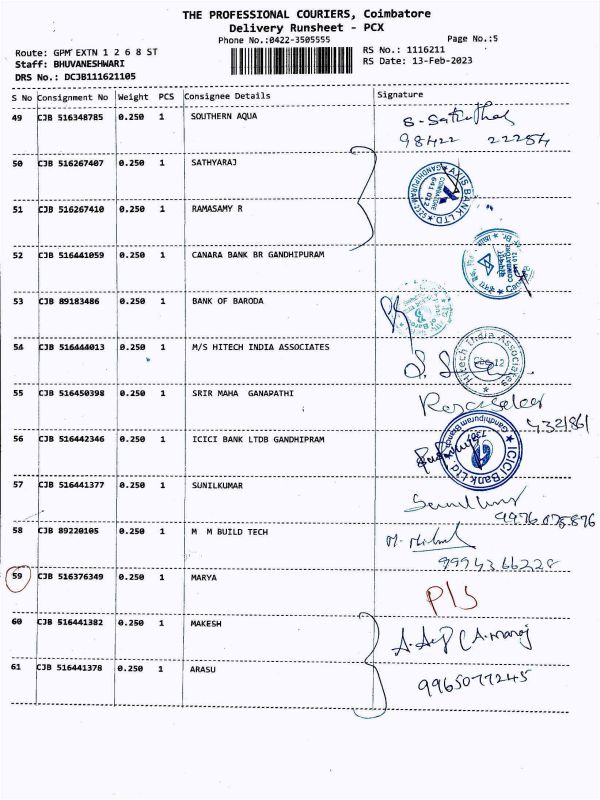 THE PROFESSIONAL COURIERS, Coimbatore
Delivery Runsheet - PCX
Phone No.:0422-3505555
Page No.:5
Route: GPM EXTN 1 2 6 8 ST
RS No.: 1116211
Staff: BHUVANESHWARI
RS Date: 13-Feb-2023
DRS No.: DCJB111621105
S No Consignment No Weight PCS Consignee Details Signature
49 CJB 516348785 0.250 1 SOUTHERN AQUA
98422 22254
50 CJB 516267407 0.250 1 SATHYARAJ
AXIS BANK LTD.
COIMBATORE
641 012
51 CJB 516267410 0.250 1 RAMASAMY R
52 CJB 516441059 0.250 1 CANARA BANK BR GANDHIPURAM
COIMBATORE
53 CJB 89183486 0.250 1 BANK OF BARODA
54 CJB 516444013 0.250 1 M/S HITECH INDIA ASSOCIATES
Hitech India Associates
55 CJB 516450398 0.250 1 SRIR MAHA GANAPATHI
4321861
56 CJB 516442346 0.250 1 ICICI BANK LTDB GANDHIPRAM
ICICI Bank Ltd
Gandhipuram Branch
57 CJB 516441377 0.250 1 SUNILKUMAR
9976 078876
58 CJB 89220105 0.250 1 M M BUILD TECH
9994366228
59 CJB 516376349 0.250 1 MARYA
P/S
60 CJB 516441382 0.250 1 MAKESH
61 CJB 516441378 0.250 1 ARASU
9965077245